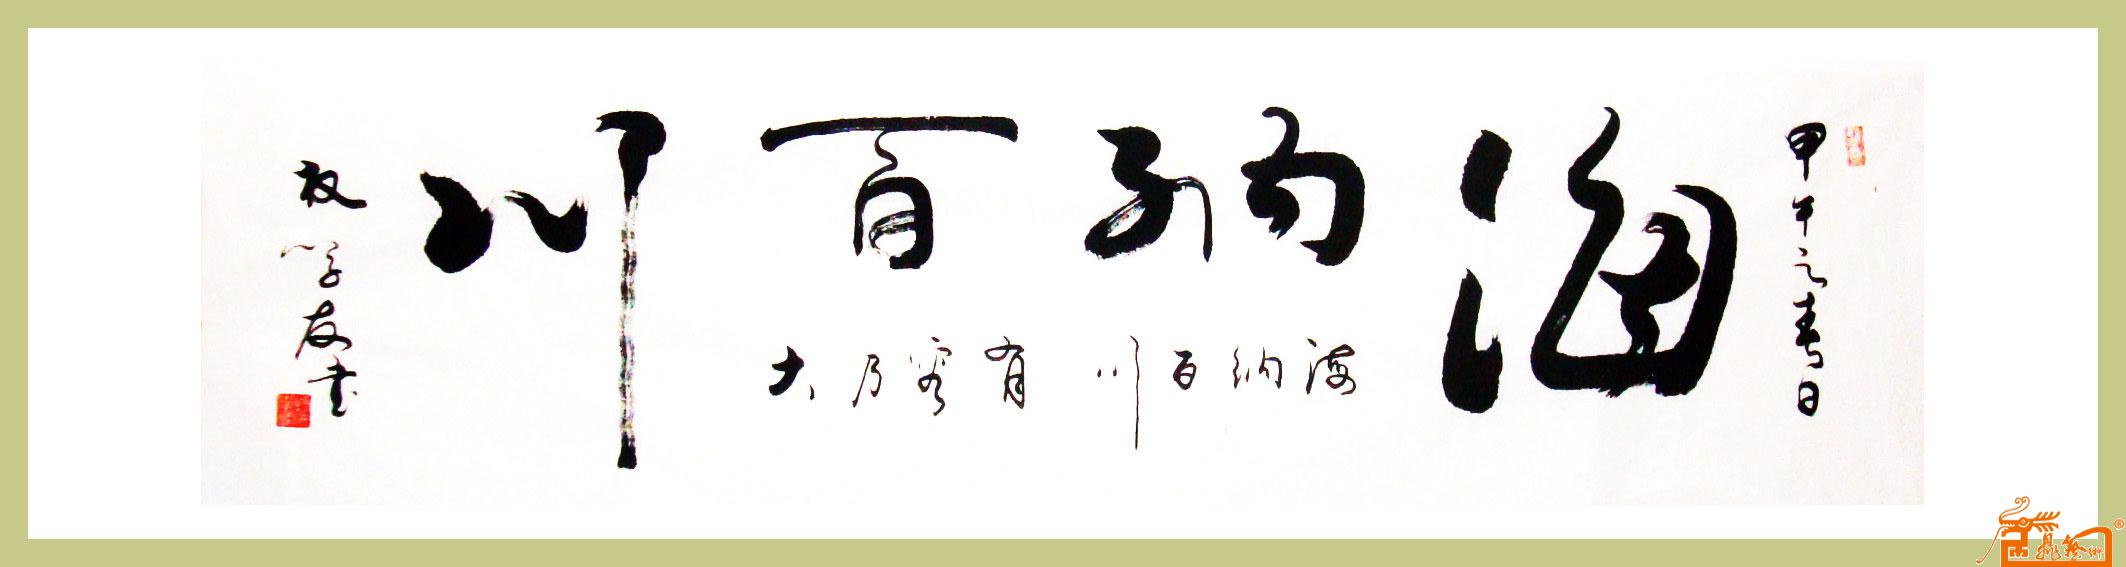 甲午之春日
海纳百川
海纳百川 有容乃大
学友书